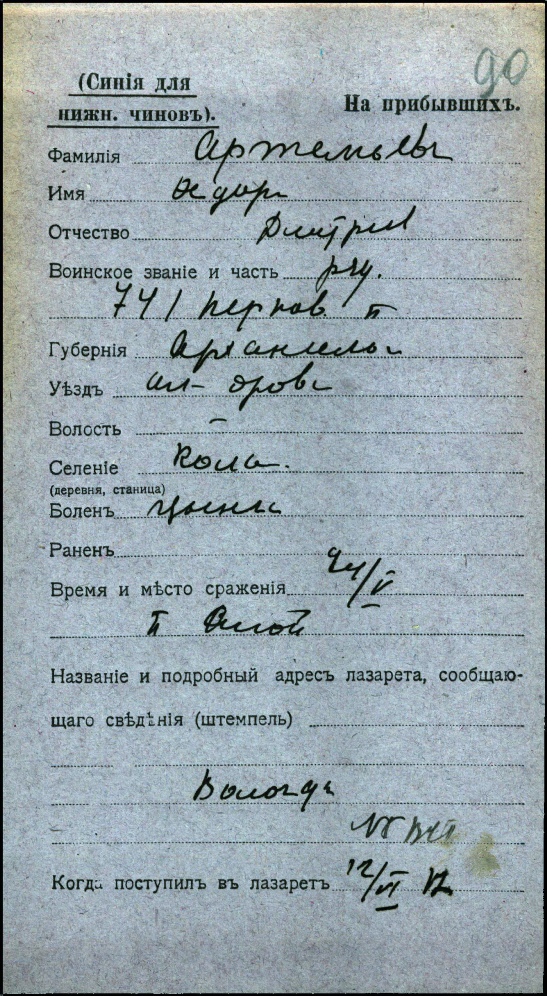 90
(Синія для
нижн. чиновъ).
На прибывшихъ.
Фамилія Артемьевъ
Имя Ѳедоръ
Отчество Дмитріев
Воинское званіе и часть ряд.
741 пернов. п
Губернія Архангельс
Уѣздъ ал-дров
Волость –
Селеніе Кола.
(деревня, станица)
Боленъ цынга
Раненъ
Время и мѣсто сраженія 24/V
п
Названіе и подробный адресъ лазарета, сообщаю-
щаго свѣдѣнія (штемпель)
Вологда
Когда поступилъ въ лазаретъ 12/VI 17